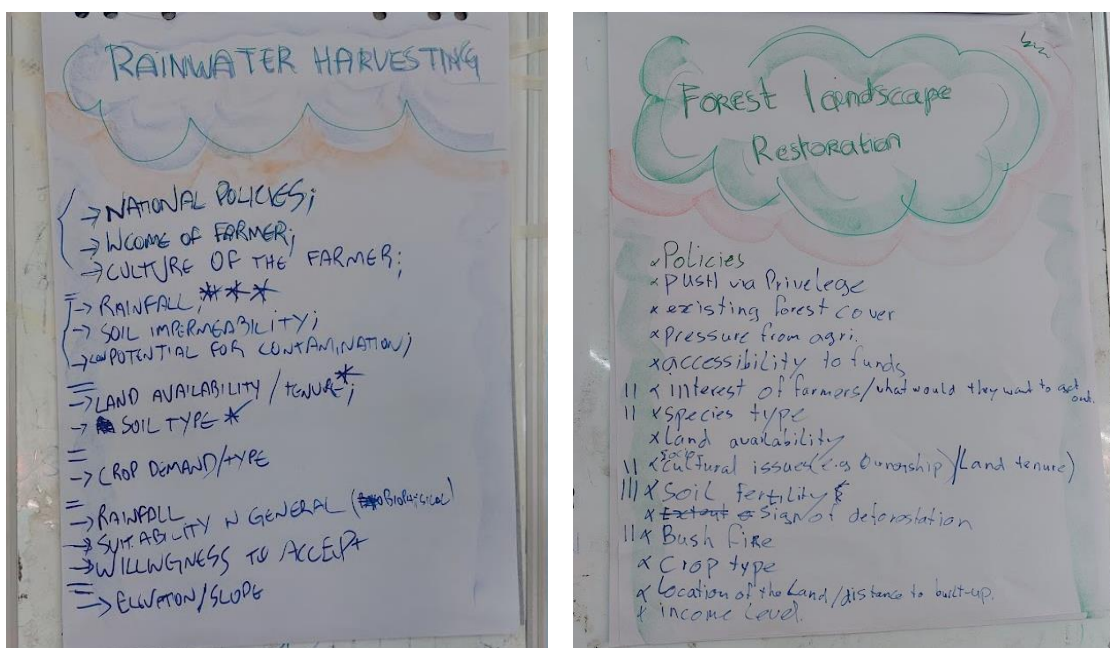 RAINWATER HARVESTING
→ NATIONAL POLICIES;
→ INCOME OF FARMER;
→ CULTURE OF THE FARMER;
→ RAINFALL; ***
→ SOIL IMPERMEABILITY;
→ POTENTIAL FOR CONTAMINATION;
→ LAND AVAILABILITY / TENURE*;
→ SOIL TYPE *
→ CROP DEMAND/TYPE
→ RAINFALL
→ SUITABILITY N GENERAL (BIOPHYSICAL)
→ WILLINGNESS TO ACCEPT
→ ELEVATION/SLOPE
Forest landscape
Restoration
x Policies
x push via Privelege
x existing forest cover
x pressure from agri.
x accessibility to funds
II x interest of farmers/what would they want to out.
II x species type
x Land availability
II x socio cultural issues (e.g Ownership)/Land tenure)
III x Soil fertility
x Sign of deforostation
II x Bush fire
x Crop type
x Location of the Land/distance to built-up.
x income level.